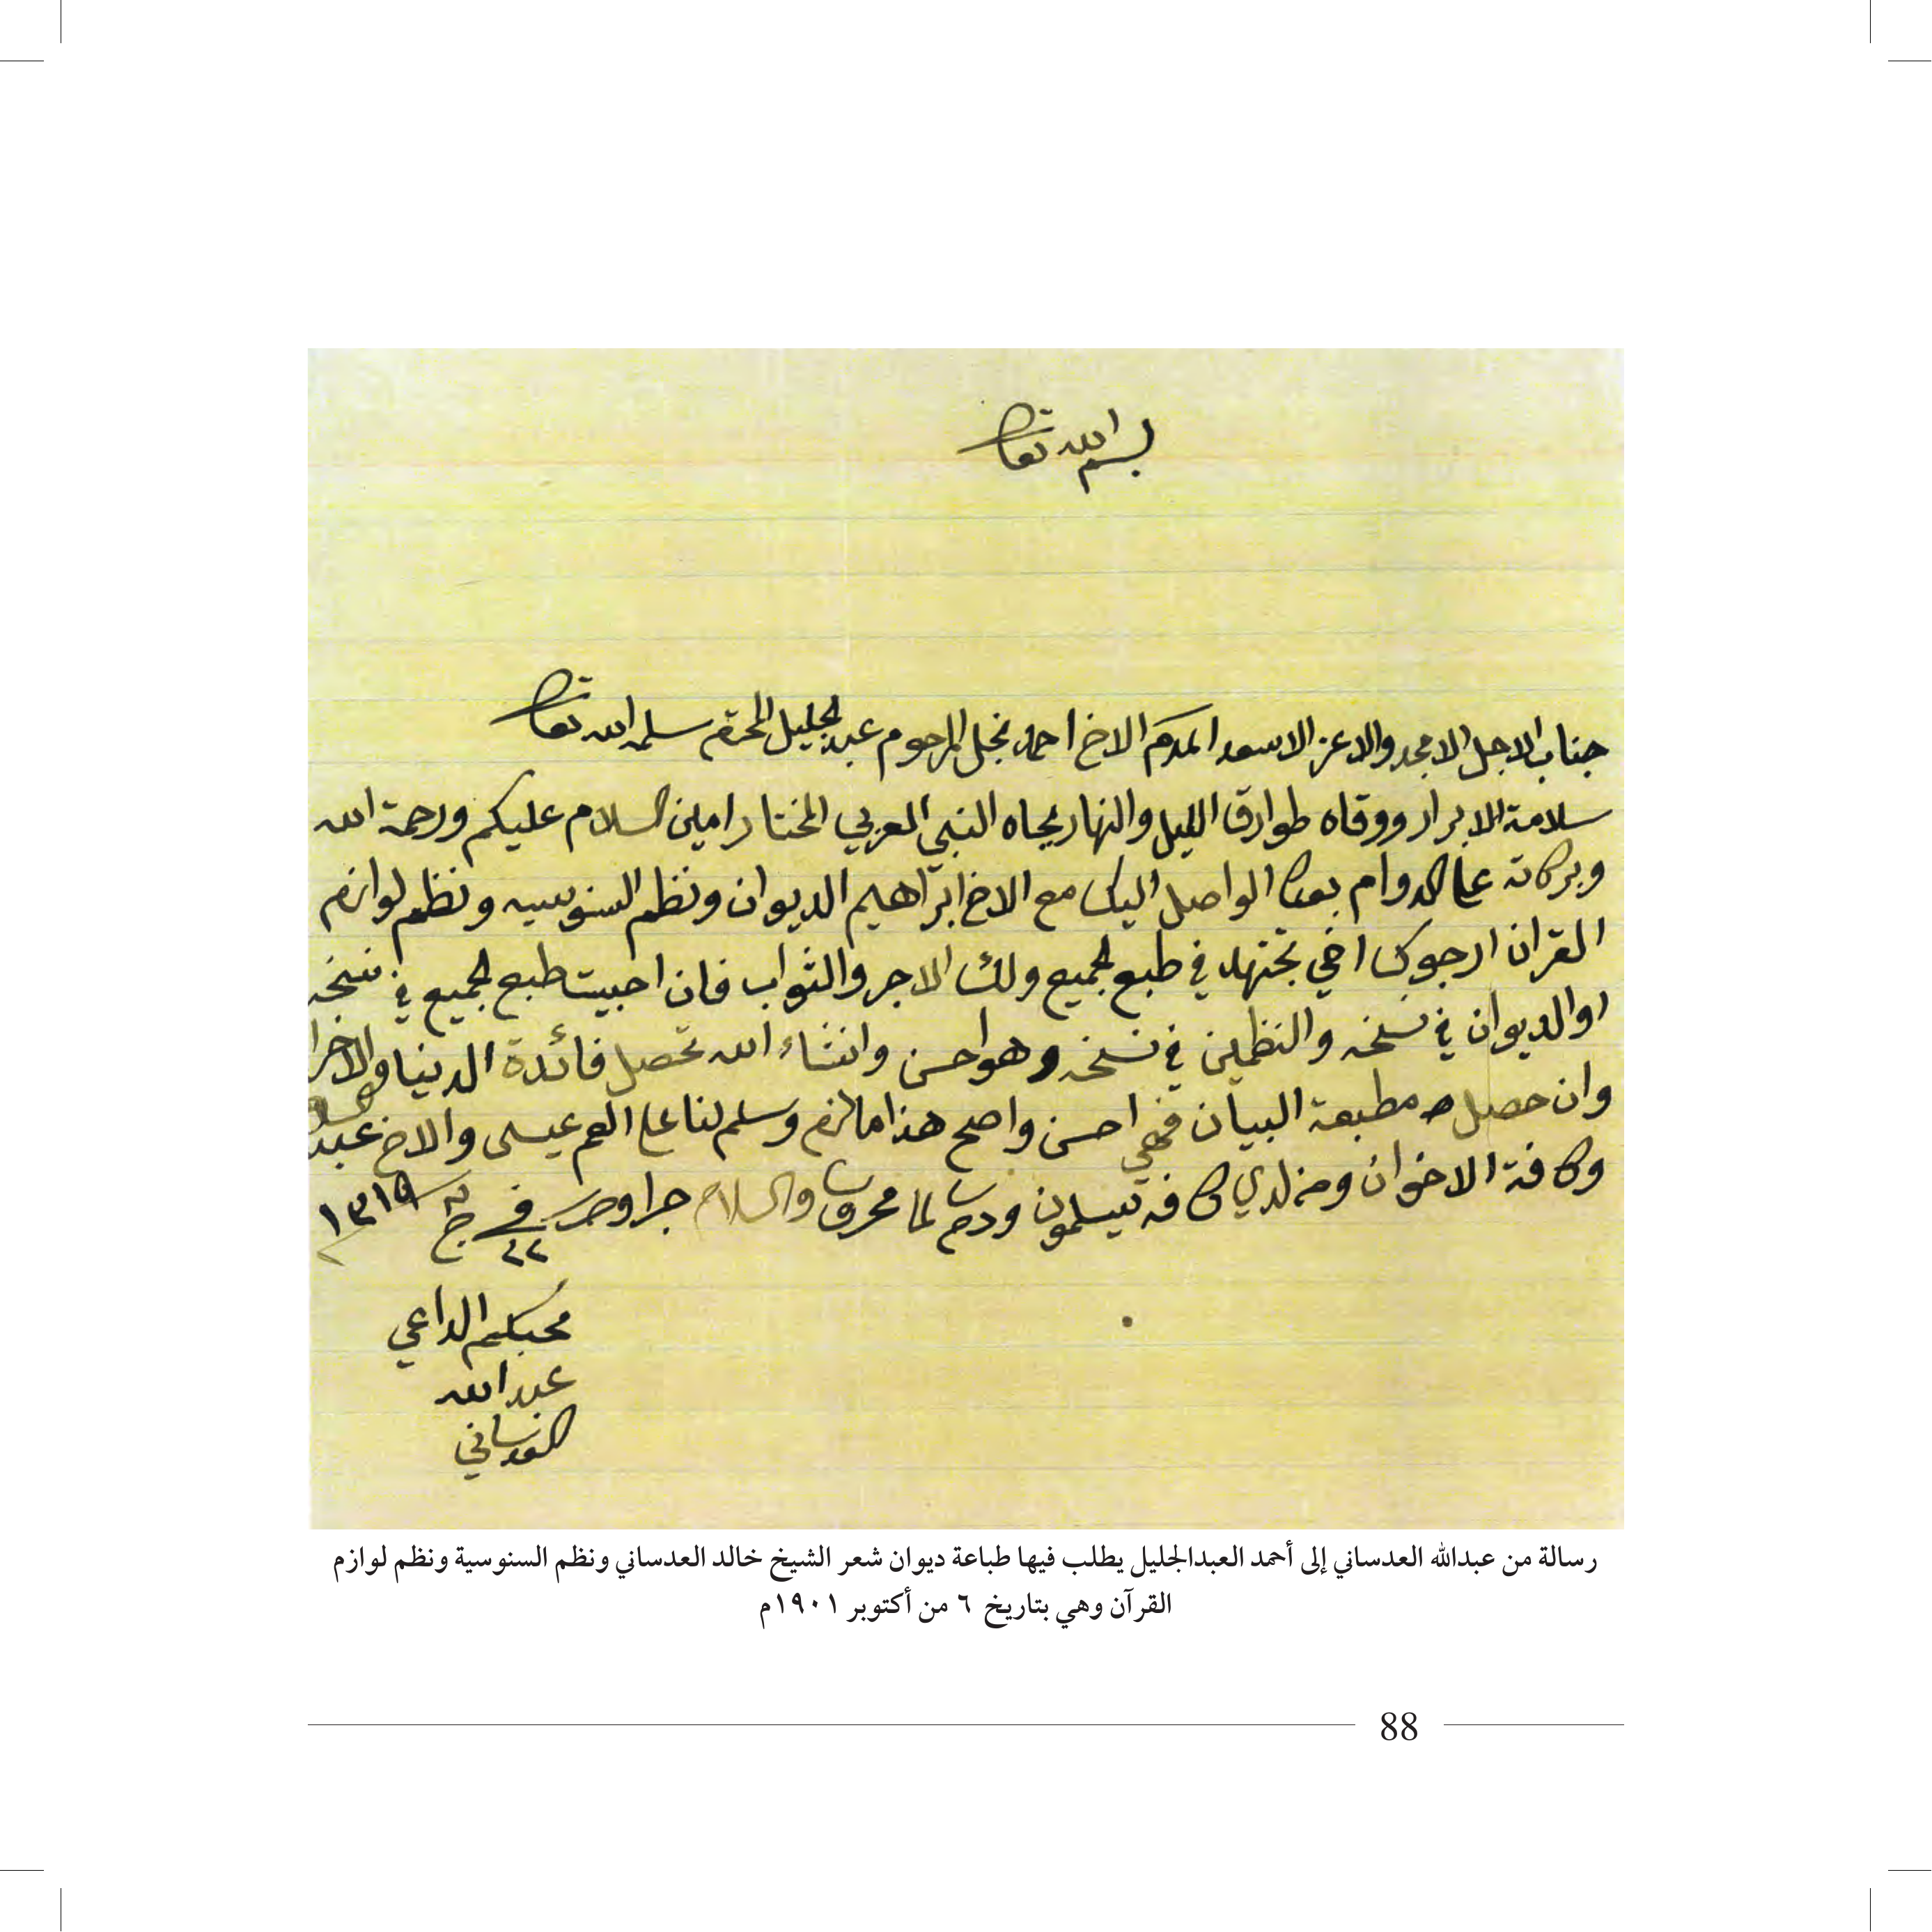 بسم الله تعالى
جناب الاجل الامجد والاعز الاسعد المكرم الاخ احمد نجل المرحوم عبد الجليل المحترم سلمه الله تعالى
سلامة الابرار ووقاه طوارق الليل والنهار بجاه النبي العربي المختار امين السلام عليكم ورحمة الله
وبركاته على الدوام بعده الواصل اليك مع الاخ ابراهيم الديوان ونظم السنوسيه ونظم لوازم
القران ارجوك اخي تجتهد في طبع الجميع ولك الاجر والثواب فان احبيت طبع الجميع في نسخه
او الديوان في نسخه والنظمين في نسخه وهو احسن وانشاء الله تحصل فائدة الدنيا والاخرا
وان حصل مطبعة البيان فهي احسن واصح هذا ما لزم وسلم لنا على العم عيسى والاخ عبد
وكافة الاخوان ومن لدي كافه يسلمون ودمت لما محروس والسلام في ٢٢ ج ١٣١٩
محبكم الداعي
عبد الله
العدساني
رسالة من عبدالله العدساني إلى أحمد العبدالجليل يطلب فيها طباعة ديوان شعر الشيخ خالد العدساني ونظم السنوسية ونظم لوازم
القرآن وهي بتاريخ ٦ من أكتوبر ١٩٠١م
88